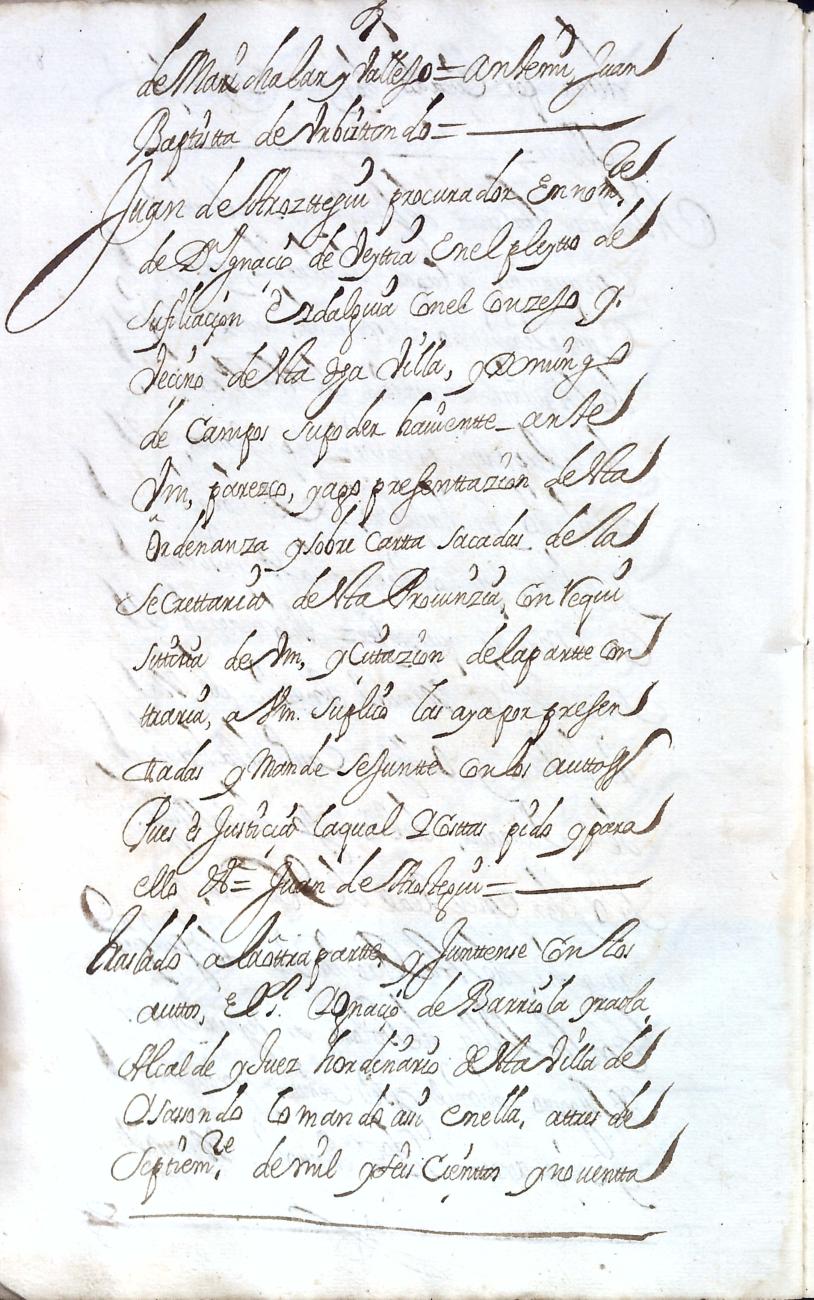 de Marichalar y Vallejo = ante mi, Juan
Baptista de Urbiztondo =
Juan de Aroztegui procurador En nom.re
de Dn. Ygnacio de Veytia En el pleytto de
su filiacion e Ydalguia Con el Conzejo, y
Vecino de Vta dha Villa, y Domingo
de Campos su poder haviente ante
Vm, parezco, y ago presenttazion de Vta
Ordenanza y sobre Cartta sacadas de la
Secrettaria de Vta Provinzia, Con requi
sittoria de Vm, y Cittazion de la partte Con
traria, a Vm. Suplico las aya por presen
ttadas y Mande se Juntte Con los auttos
Pues es Justicia la qual y Costtas pido y para
ello &a = Juan de Aroztegui =
Traslado a la ottra partte, y Junttense Con los
auttos, El Sr. Dn Ygnacio de Barriola
Alcalde y Juez hordinario de Vta Villa de
Ysasondo lo mando asi en ella, a ttres de
Septiem.re de mil y seis Cienttos y noventta